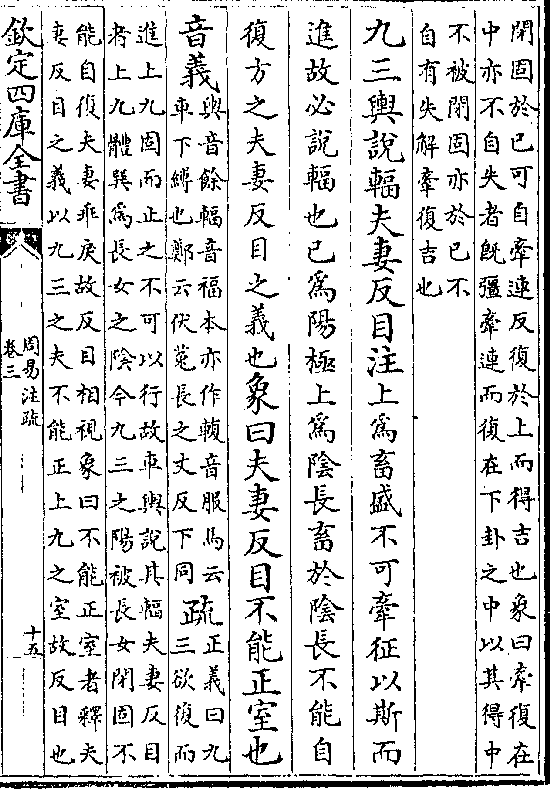 閉固於已可自牽連反復於上而得吉也象曰牽復在
中亦不自失者旣彊牽連而復在下卦之中以其得中
不被閉固亦於已不
自有失解牽復吉也
九三輿說輻夫妻反目注上爲畜盛不可牽征以斯而
進故必說輻也已爲陽極上爲陰長畜於陰長不能自
復方之夫妻反目之義也象曰夫妻反目不能正室也
音義輿音餘輻音福本亦作輹音服馬云
車下縛也鄭云伏菟長之丈反下同
疏正義曰九
三欲復而
進上九固而止之不可以行故車輿說其輻夫妻反目
者上九體巽爲長女之陰今九三之陽被長女閉固不
能自復夫妻乖戾故反目相視象曰不能正室者釋夫
妻反目之義以九三之夫不能正上九之室故反目也
欽定四庫全書
周易注疏
卷三
十五